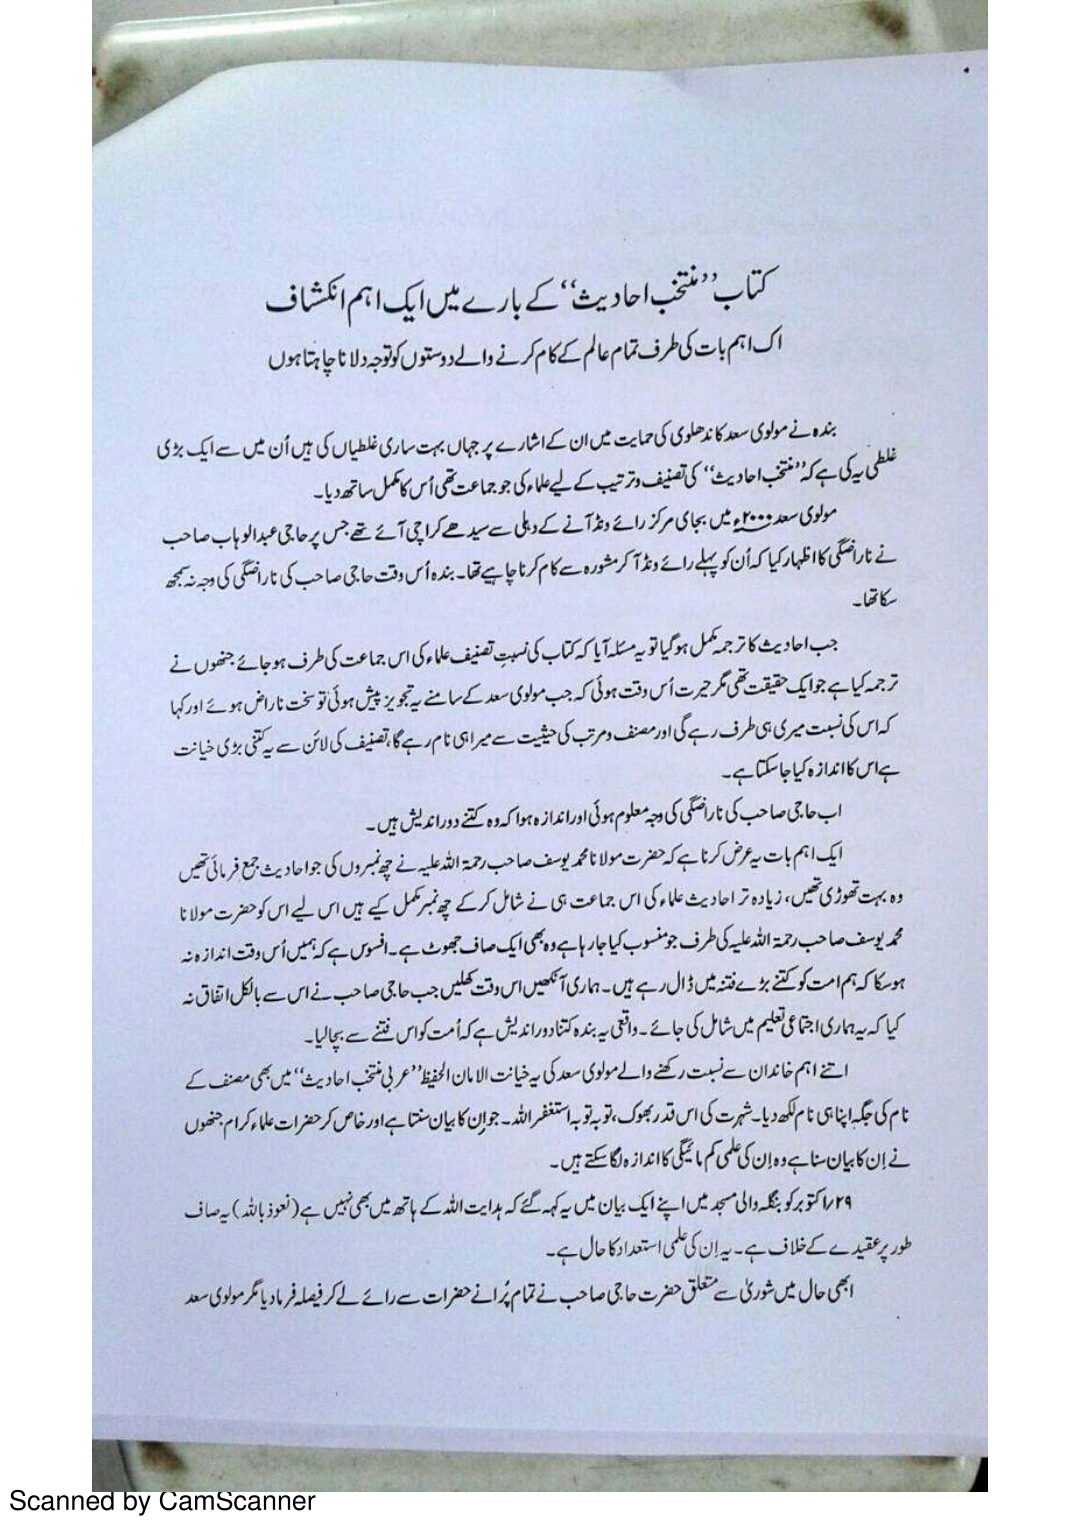 کتاب ’’منتخب احادیث‘‘ کے بارے میں ایک اہم انکشاف
اک اہم بات کی طرف تمام عالم کے کام کرنے والے دوستوں کو توجہ دلانا چاہتا ہوں
بندہ نے مولوی سعد کاندھلوی کی حمایت میں ان کے اشارے پر جہاں بہت ساری غلطیاں کی ہیں اُن میں سے ایک بڑی
غلطی یہ کی ہے کہ ’’منتخب احادیث‘‘ کی تصنیف و ترتیب کے لیے علماء کی جو جماعت تھی اُس کا مکمل ساتھ دیا۔
مولوی سعد ۲۰۰۰ء میں بجای مرکز رائے ونڈ آنے کے دہلی سے سیدھے کراچی آئے تھے جس پر حاجی عبدالوہاب صاحب
نے ناراضگی کا اظہار کیا کہ اُن کو پہلے رائے ونڈ آ کر مشورہ سے کام کرنا چاہیے تھا۔ بندہ اُس وقت حاجی صاحب کی ناراضگی کی وجہ نہ سمجھ
سکا تھا۔
جب احادیث کا ترجمہ مکمل ہو گیا تو یہ مسئلہ آیا کہ کتاب کی نسبتِ تصنیف علماء کی اس جماعت کی طرف ہو جائے جنھوں نے
ترجمہ کیا ہے جو ایک حقیقت تھی مگر حیرت اُس وقت ہوئی کہ جب مولوی سعد کے سامنے یہ تجویز پیش ہوئی تو سخت ناراض ہوئے اور کہا
کہ اس کی نسبت میری ہی طرف رہے گی اور مصنف و مرتب کی حیثیت سے میرا ہی نام رہے گا، تصنیف کی لائن سے یہ کتنی بڑی خیانت
ہے اس کا اندازہ کیا جا سکتا ہے۔
اب حاجی صاحب کی ناراضگی کی وجہ معلوم ہوئی اور اندازہ ہوا کہ وہ کتنے دور اندیش ہیں۔
ایک اہم بات یہ عرض کرنا ہے کہ حضرت مولانا محمد یوسف صاحب رحمۃ اللہ علیہ نے چھ نمبروں کی جو احادیث جمع فرمائی تھیں
وہ بہت تھوڑی تھیں، زیادہ تر احادیث علماء کی اس جماعت ہی نے شامل کر کے چھ نمبر مکمل کیے ہیں اس لیے اس کو حضرت مولانا
محمد یوسف صاحب رحمۃ اللہ علیہ کی طرف جو منسوب کیا جا رہا ہے وہ بھی ایک صاف جھوٹ ہے۔ افسوس ہے کہ ہمیں اُس وقت اندازہ نہ
ہو سکا کہ ہم امت کو کتنے بڑے فتنہ میں ڈال رہے ہیں۔ ہماری آنکھیں اس وقت کھلیں جب حاجی صاحب نے اس سے بالکل اتفاق نہ
کیا کہ یہ ہماری اجتماعی تعلیم میں شامل کی جائے۔ واقعی یہ بندہ کتنا دور اندیش ہے کہ اُمت کو اس فتنے سے بچا لیا۔
اتنے اہم خاندان سے نسبت رکھنے والے مولوی سعد کی یہ خیانت الامان الحفیظ ’’عربی منتخب احادیث‘‘ میں بھی مصنف کے
نام کی جگہ اپنا ہی نام لکھ دیا۔ شہرت کی اس قدر بھوک، توبہ توبہ استغفر اللہ۔ جو اِن کا بیان سنتا ہے اور خاص کر حضرات علماء کرام جنھوں
نے اِن کا بیان سنا ہے وہ اِن کی علمی کم مائیگی کا اندازہ لگا سکتے ہیں۔
۲۹؍ اکتوبر کو بنگلہ والی مسجد میں اپنے ایک بیان میں یہ کہہ گئے کہ ہدایت اللہ کے ہاتھ میں بھی نہیں ہے (نعوذ باللہ) یہ صاف
طور پر عقیدے کے خلاف ہے۔ یہ اِن کی علمی استعداد کا حال ہے۔
ابھی حال میں شوریٰ سے متعلق حضرت حاجی صاحب نے تمام پُرانے حضرات سے رائے لے کر فیصلہ فرما دیا مگر مولوی سعد
Scanned by CamScanner